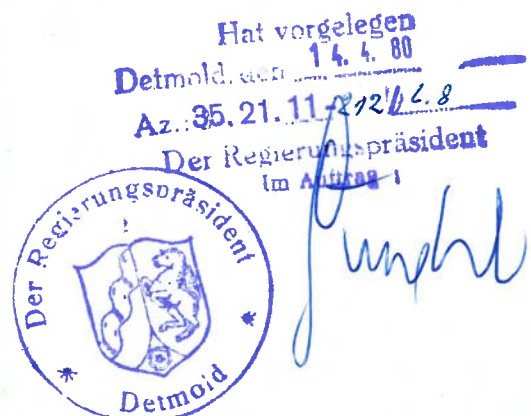 Hat vorgelegen
Detmold, den 14. 4. 80
Az.: 35. 21. 11-212/L.8
Der Regierungspräsident
Im Auftrag
Der Regierungspräsident
Detmold